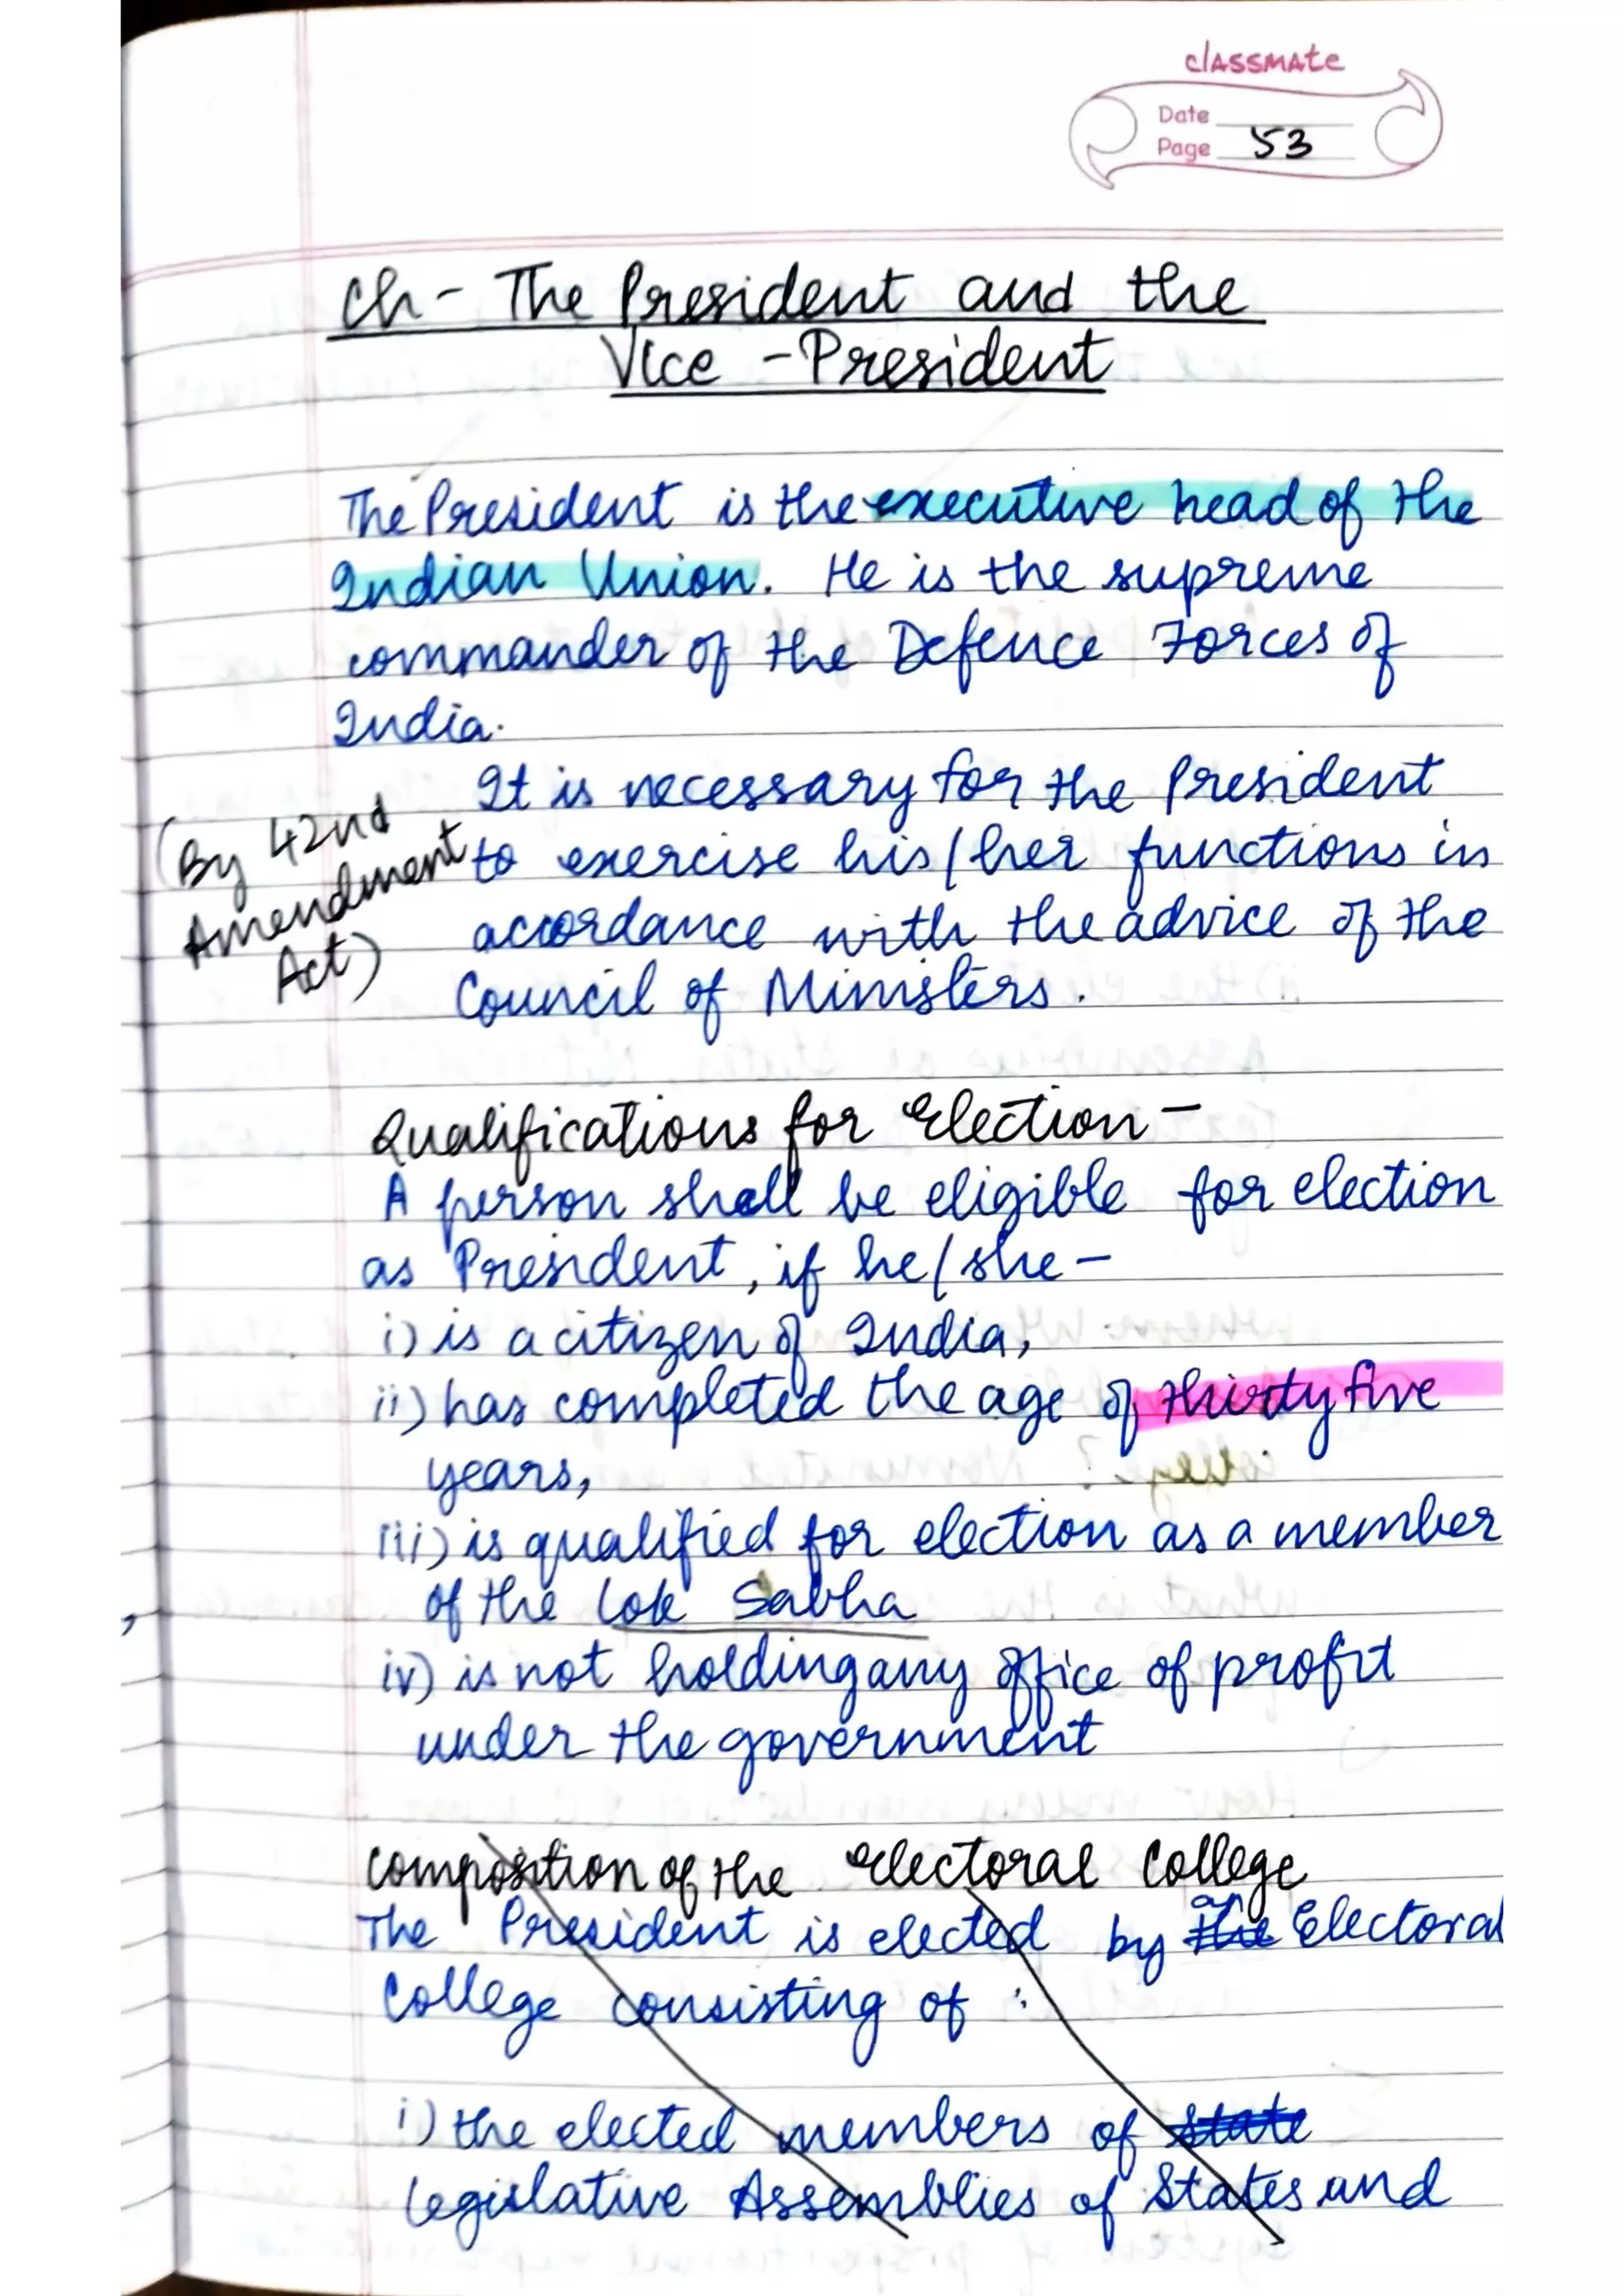 classmate
Date
Page 53
Ch - The President and the
Vice - President
The President is the executive head of the
Indian Union. He is the supreme
commander of the Defence Forces of
India.
It is necessary for the President
(By 42nd
Amendment
Act)
to exercise his/her functions in
accordance with the advice of the
Council of Ministers.
Qualifications for Election -
A person shall be eligible for election
as President, if he/she -
i) is a citizen of India,
ii) has completed the age of thirty five
years,
iii) is qualified for election as a member
of the Lok Sabha
iv) is not holding any office of profit
under the government
Composition of the Electoral College
The President is elected by the an Electoral
College consisting of :
i) the elected members of state
Legislative Assemblies of States and